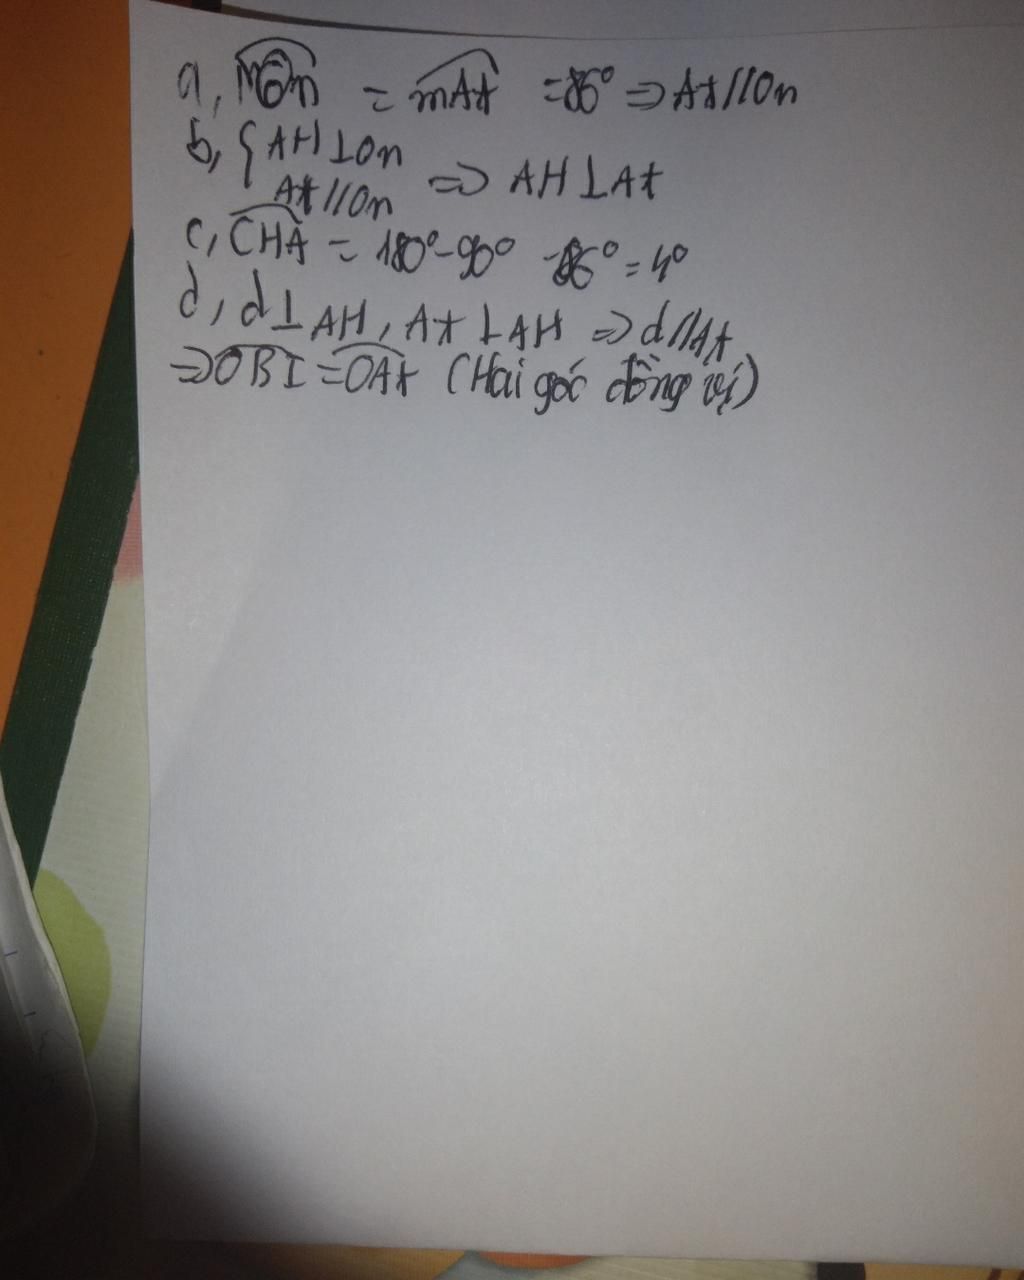 a, mOn = mAt = 86° => At//On
b, { AH⊥On
At//On => AH⊥At
c, CHA = 180°-90° -86° = 4°
d, d⊥AH, At⊥AH => d//At
=> OBI = OAt (Hai góc đồng vị)